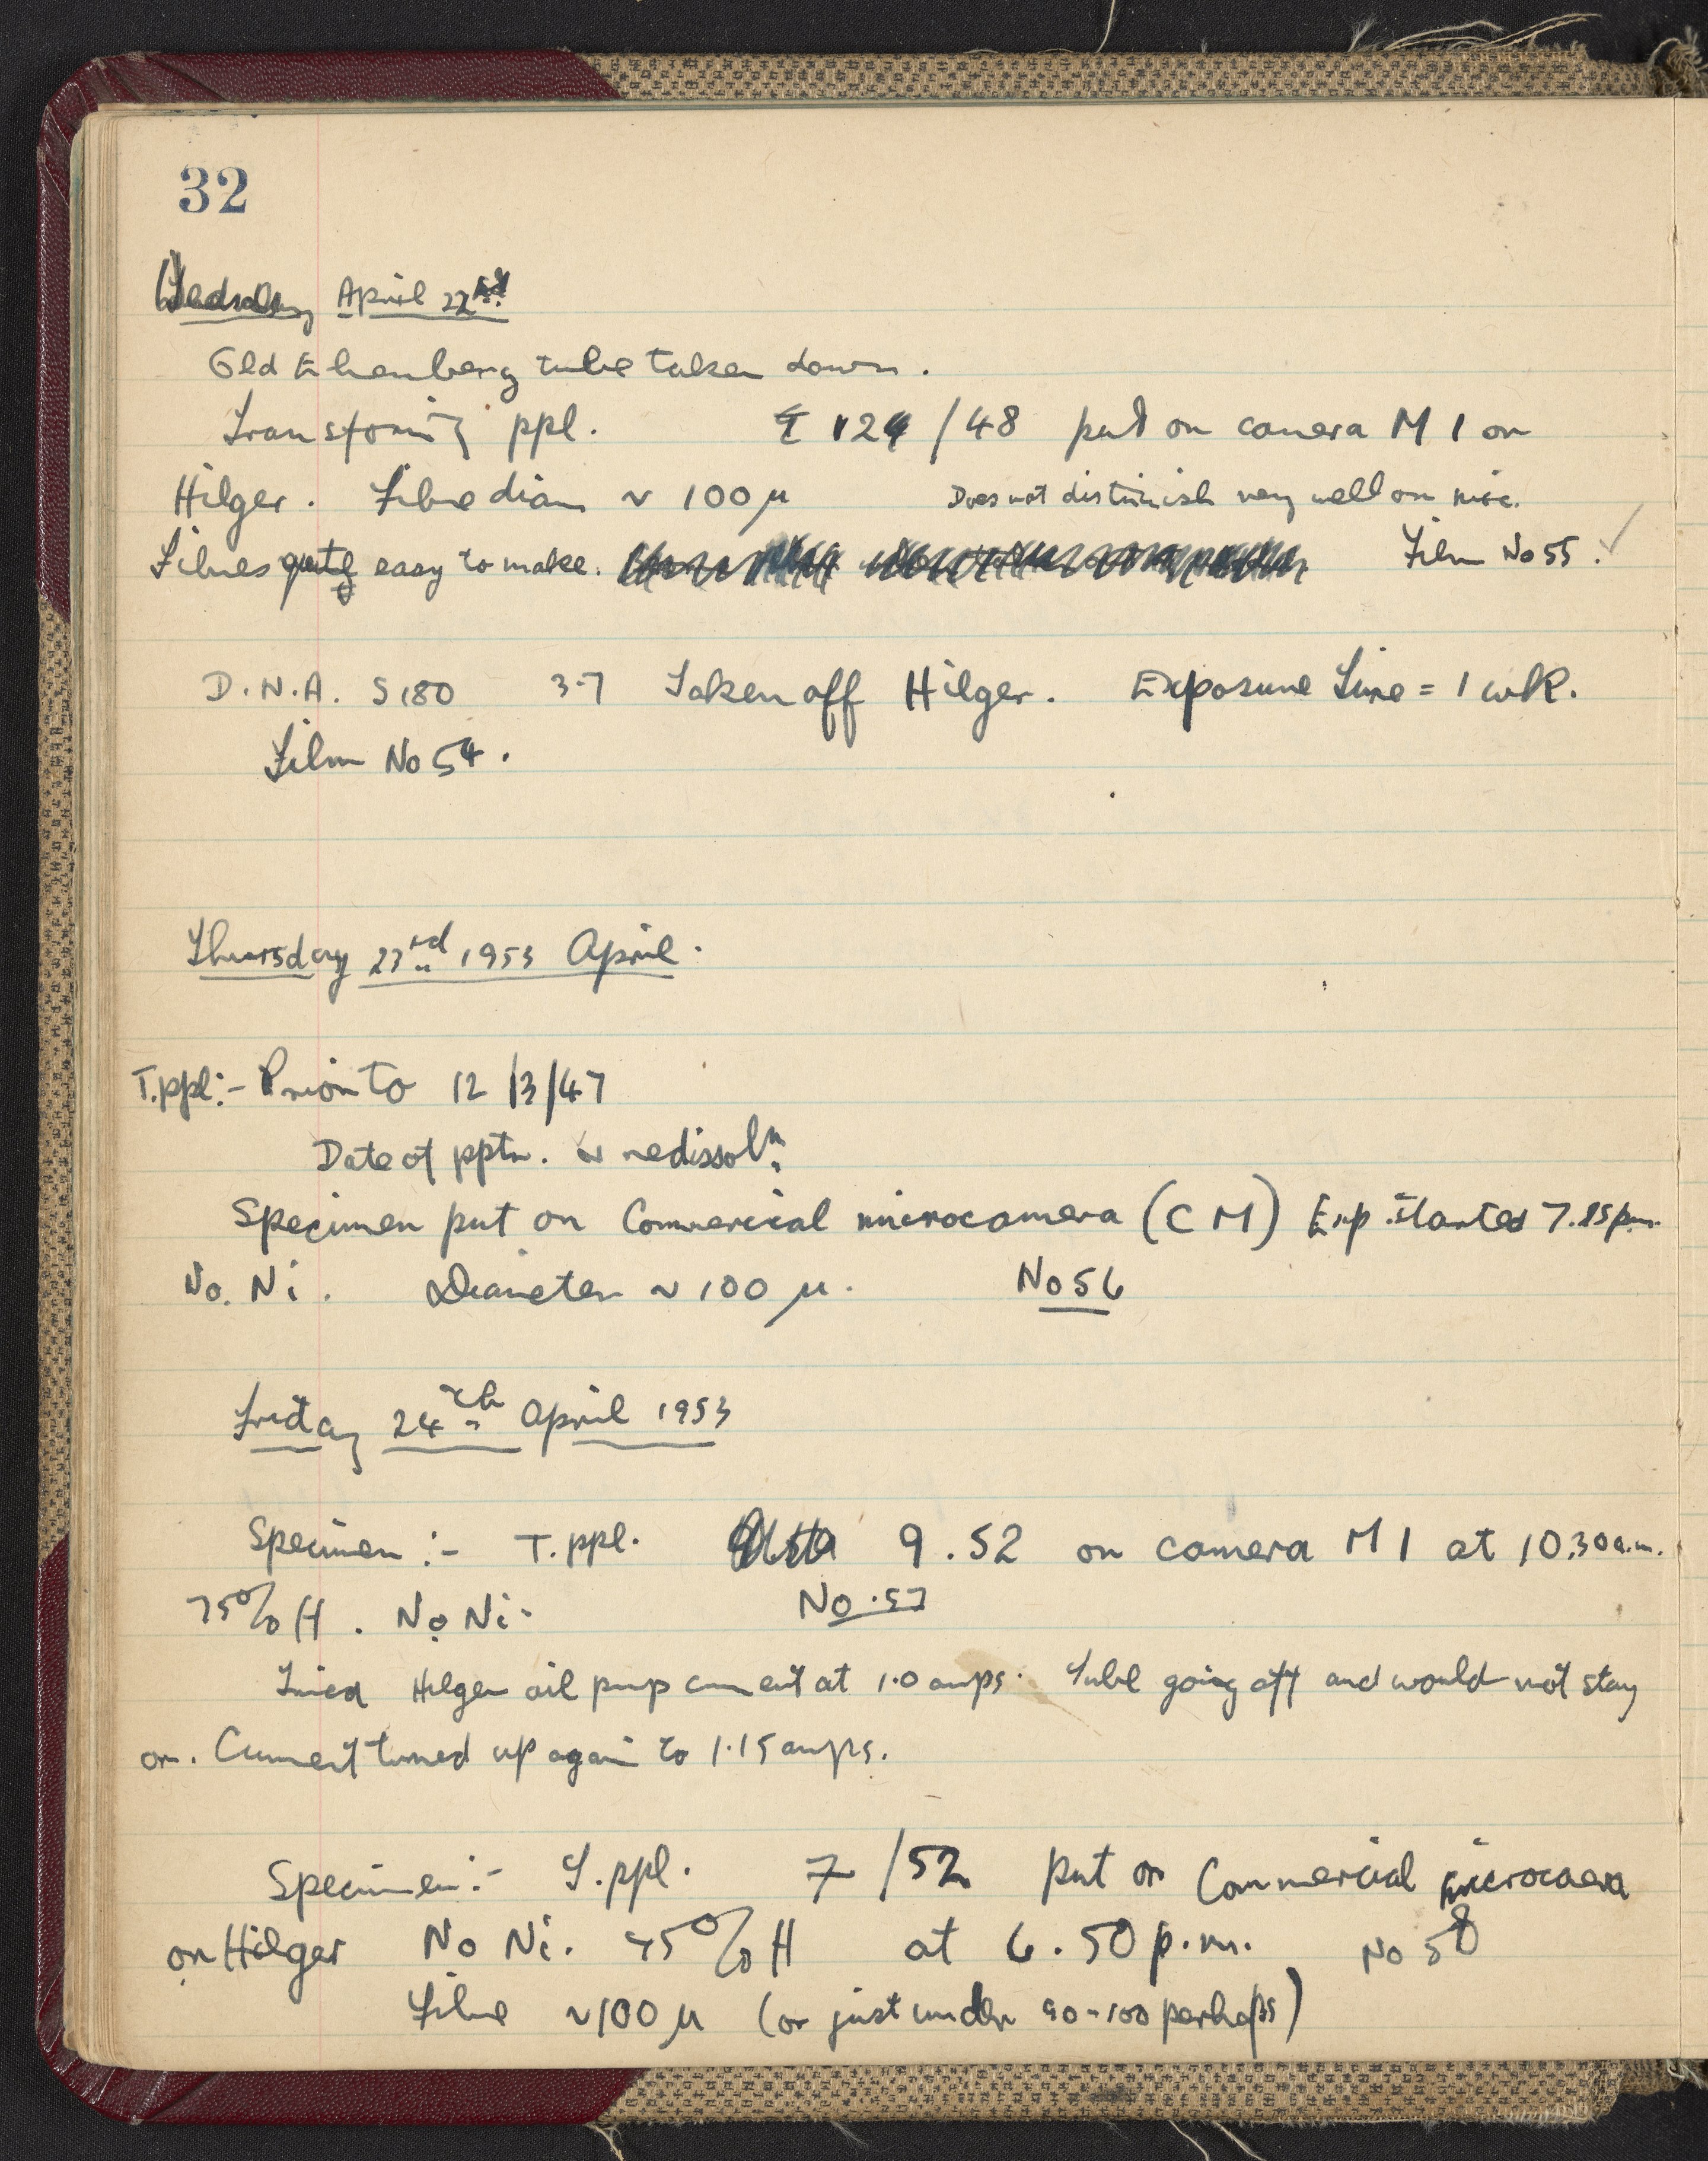 32
Wednesday April 22nd
Old Ehrenberg tube taken down.
Transforming ppl. 124/48 put on camera M1 on
Hilger. Fibre diam ~ 100 μ Does not distinguish very well on mic.
Fibres quite easy to make. Film No 55.
D.N.A. S180 3.7 Taken off Hilger. Exposure Time = 1 wk.
Film No 54.
Thursday 23rd 1953 April.
T.ppl:- Prior to 12/3/47
Date of pptn. redissoln.
Specimen put on Commercial microcamera (CM) Exp. started p.m.
No. Ni. Diameter ~ 100 μ. No 56
Friday 24th April 1953
Specimen:- T.ppl. 9.52 on camera M1 at 10.30 a.m.
75% H. No Ni. No. 57
Tried Hilger oil pump current at 1.0 amps. Tube going off and would not stay
on. Current turned up again to 1.15 amps.
Specimen:- T.ppl. 7/52 put on Commercial microcaera
on Hilger No Ni. 75% H at 6.50 p.m. No 58
Fibre ~100 μ (or just under 90-100 perhaps)